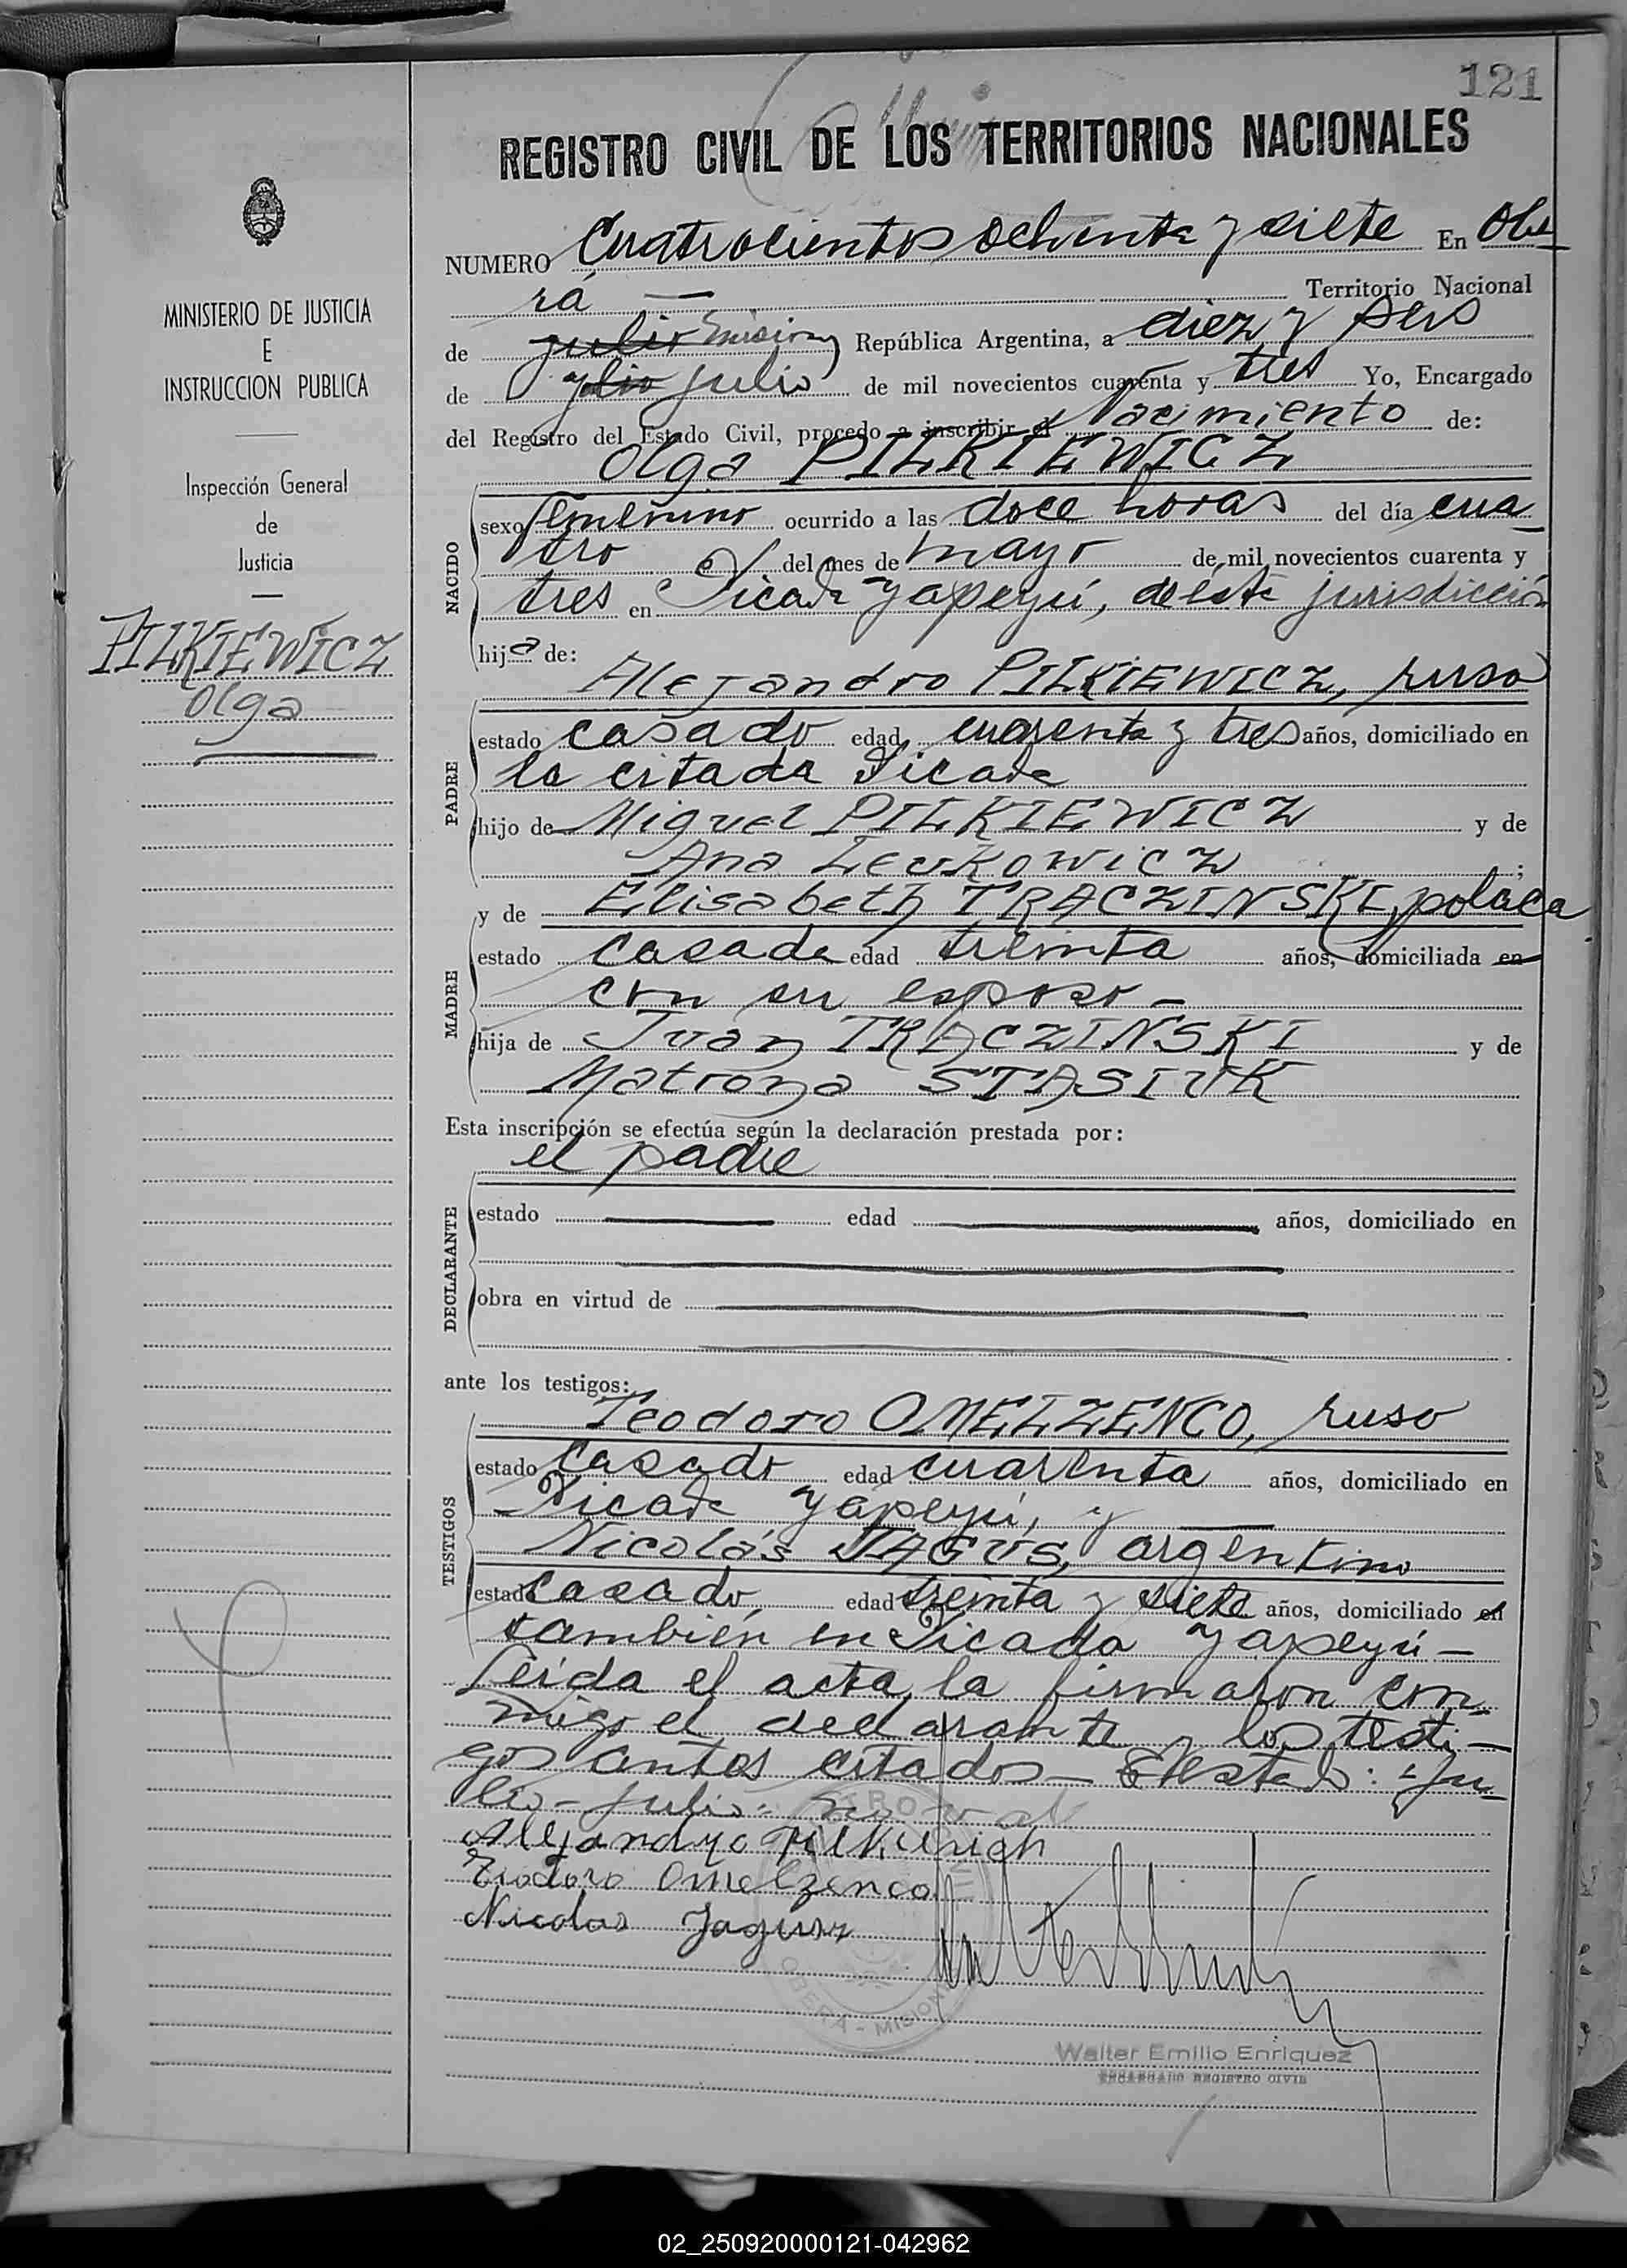 121
REGISTRO CIVIL DE LOS TERRITORIOS NACIONALES
MINISTERIO DE JUSTICIA
E
INSTRUCCION PUBLICA
Inspección General
de
Justicia
PILKIEWICZ
Olga
NUMERO Cuatrocientos ochenta y siete En Obe
rá Territorio Nacional
de julio Misiones República Argentina, a diez y seis
de julio julio de mil novecientos cuarenta y tres Yo, Encargado
del Registro del Estado Civil, procedo a inscribir el Nacimiento de:
Olga PILKIEWICZ
NACIDO
sexo femenino ocurrido a las doce horas del día cua
tro del mes de mayo de mil novecientos cuarenta y
tres en Picada Yapeyú, de ésta jurisdicción
hija de:
Alejandro PILKIEWICZ, ruso
PADRE
estado casado edad cuarenta y tres años, domiciliado en
la citada Picada
hijo de Miguel PILKIEWICZ y de
Ana Levkowicz ;
y de Elisabeth TRACZINSKI, polaca
MADRE
estado casada edad treinta años, domiciliada en
con su esposo -
hija de Juan TRACZINSKI y de
Matrona STASIUK
Esta inscripción se efectúa según la declaración prestada por:
el padre
DECLARANTE
estado edad años, domiciliado en
obra en virtud de
ante los testigos:
Teodoro OMELZENCO, ruso
TESTIGOS
estado casado edad cuarenta años, domiciliado en
Picada Yapeyú, y
Nicolás JAGUS, argentino
estado casado, edad treinta y siete años, domiciliado en
también en Picada Yapeyú -
Leída el acta, la firmaron con
migo el declarante y los testi-
gos antes citados - Testado: "Ju
lio - julio: no vale
Alejandro
Teodoro Omelzenco
Nicolas
OBERA - MISIONES
Walter Emilio Enriquez
ENCARGADO REGISTRO CIVIL
02_250920000121-042962